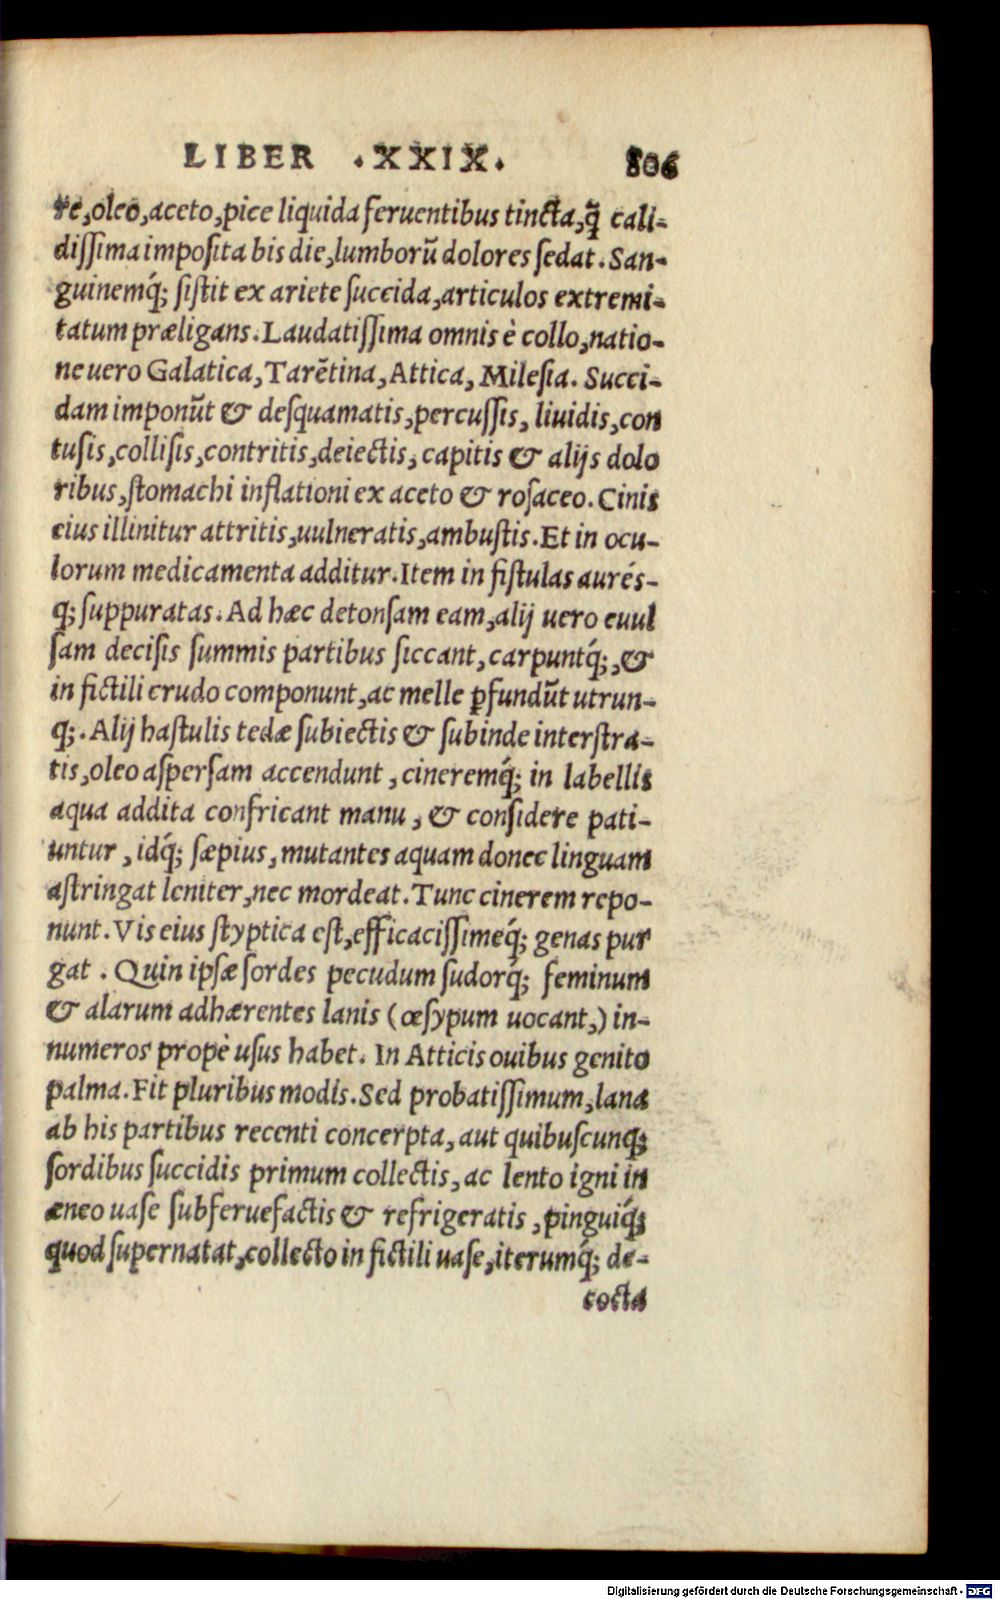 LIBER .XXIX. 806
re,oleo,aceto,pice liquida feruentibus tincta,q̃ cali-
dissima imposita bis die,lumborũ dolores sedat.San-
guinemq́; sistit ex ariete succida,articulos extremi-
tatum præligans.Laudatissima omnis è collo,natio-
ne uero Galatica,Tarẽtina,Attica, Milesia. Succi-
dam imponũt & desquamatis,percussis, liuidis,con
tusis,collisis,contritis,deiectis, capitis & alijs dolo
ribus,stomachi inflationi ex aceto & rosaceo.Cinis
eius illinitur attritis,uulneratis,ambustis.Et in ocu-
lorum medicamenta additur.Item in fistulas aurés-
q; suppuratas. Ad hæc detonsam eam,alij uero euul
sam decisis summis partibus siccant,carpuntq́;,&
in fictili crudo componunt,ac melle ꝑfundũt utrun-
q;. Alij hastulis tedæ subiectis & subinde interstra-
tis,oleo aspersam accendunt , cineremq́; in labellis
aqua addita confricant manu , & considere pati-
untur , idq́; sæpius, mutantes aquam donec linguam
astringat leniter,nec mordeat.Tunc cinerem repo-
nunt.Vis eius styptica est,efficacissimeq́; genas pur
gat . Quin ipsæ sordes pecudum sudorq́; feminum
& alarum adhærentes lanis (œsypum uocant,) in-
numeros propè usus habet. In Atticis ouibus genito
palma.Fit pluribus modis.Sed probatissimum,lana
ab his partibus recenti concerpta,aut quibuscunq;
sordibus succidis primum collectis,ac lento igni in
æneo uase subferuefactis & refrigeratis ,pinguiq́;
quod supernatat,collecto in fictili uase,iterumq́; de-
cocta
Digitalisierung gefördert durch die Deutsche Forschungsgemeinschaft - DFG